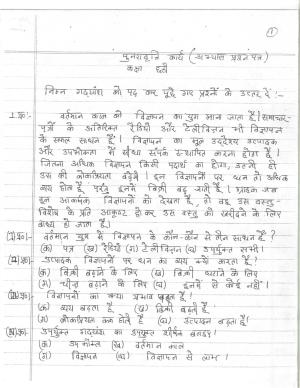 1
पुनरावृत्ति कार्य (अभ्यास प्रश्न पत्र)
कक्षा छठी
निम्न गद्यांश को पढ़ कर पूछे गए प्रश्नों के उत्तर दें :-
वर्तमान काल को विज्ञापन का युग माना जाता है। समाचार-
पत्रों के अतिरिक्त रेडियो और टेलीविजन भी विज्ञापन
के सफल साधन हैं। विज्ञापन का मूल उद्देश्य उत्पादक
और उपभोक्ता में सीधा संपर्क स्थापित करना होता है।
जितना अधिक विज्ञापन किसी पदार्थ का होगा, उतनी ही
उस की लोकप्रियता बढ़ेगी। इन विज्ञापनों पर धन तो अधिक
व्यय होता है परंतु इनसे बिक्री बढ़ जाती है। ग्राहक जब
इन आकर्षक विज्ञापनों को देखता है, तो वह उस वस्तु-
विशेष के प्रति आकृष्ट हो कर उस वस्तु को खरीदने के लिए
बाध्य हो जाता है।
वर्तमान युग में विज्ञापन के कौन-कौन से तीन साधन हैं?
(क) पत्र (ख) रेडियो (ग) टेलीविजन (घ) उपर्युक्त सभी।
उत्पादक विज्ञापनों पर धन का व्यय क्यों करता है?
(क) बिक्री बढ़ाने के लिए (ख) बिक्री घटाने के लिए
(ग) चीज़ें बढ़ाने के लिए (घ) इनमें से कोई नहीं।
विज्ञापनों का क्या प्रभाव है?
(क) व्यय बढ़ता है (ख) बिक्री बढ़ती है
(ग) लोकप्रियता कम होती है (घ) उत्पादन बढ़ता है।
उपर्युक्त गद्यांश का उपयुक्त शीर्षक बताइए?
(क) उपभोक्ता (ख) वर्तमान काल
(ग) विज्ञापन (घ) विज्ञापन से लाभ।